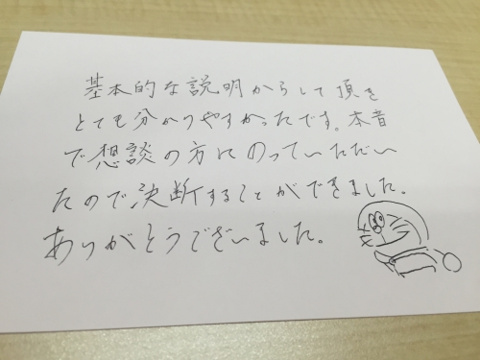 基本的な説明からして頂き
とても分かりやすかったです。本音
で想談の方にのっていただい
たので決断することができました。
ありがとうございました。